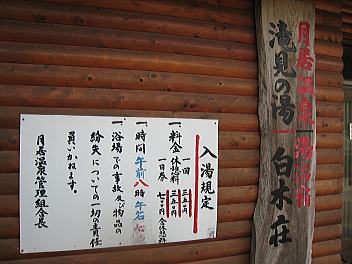 月居温泉
滝見の湯
白木荘
入湯規定
一、料金
一回
三五〇円
休憩料
三五〇円
一日券
七〇〇円
一、時間 午前八時
一、浴場での事故及び物品の
紛失についての一切の責任
負いかねます。
月居温泉管理組合長